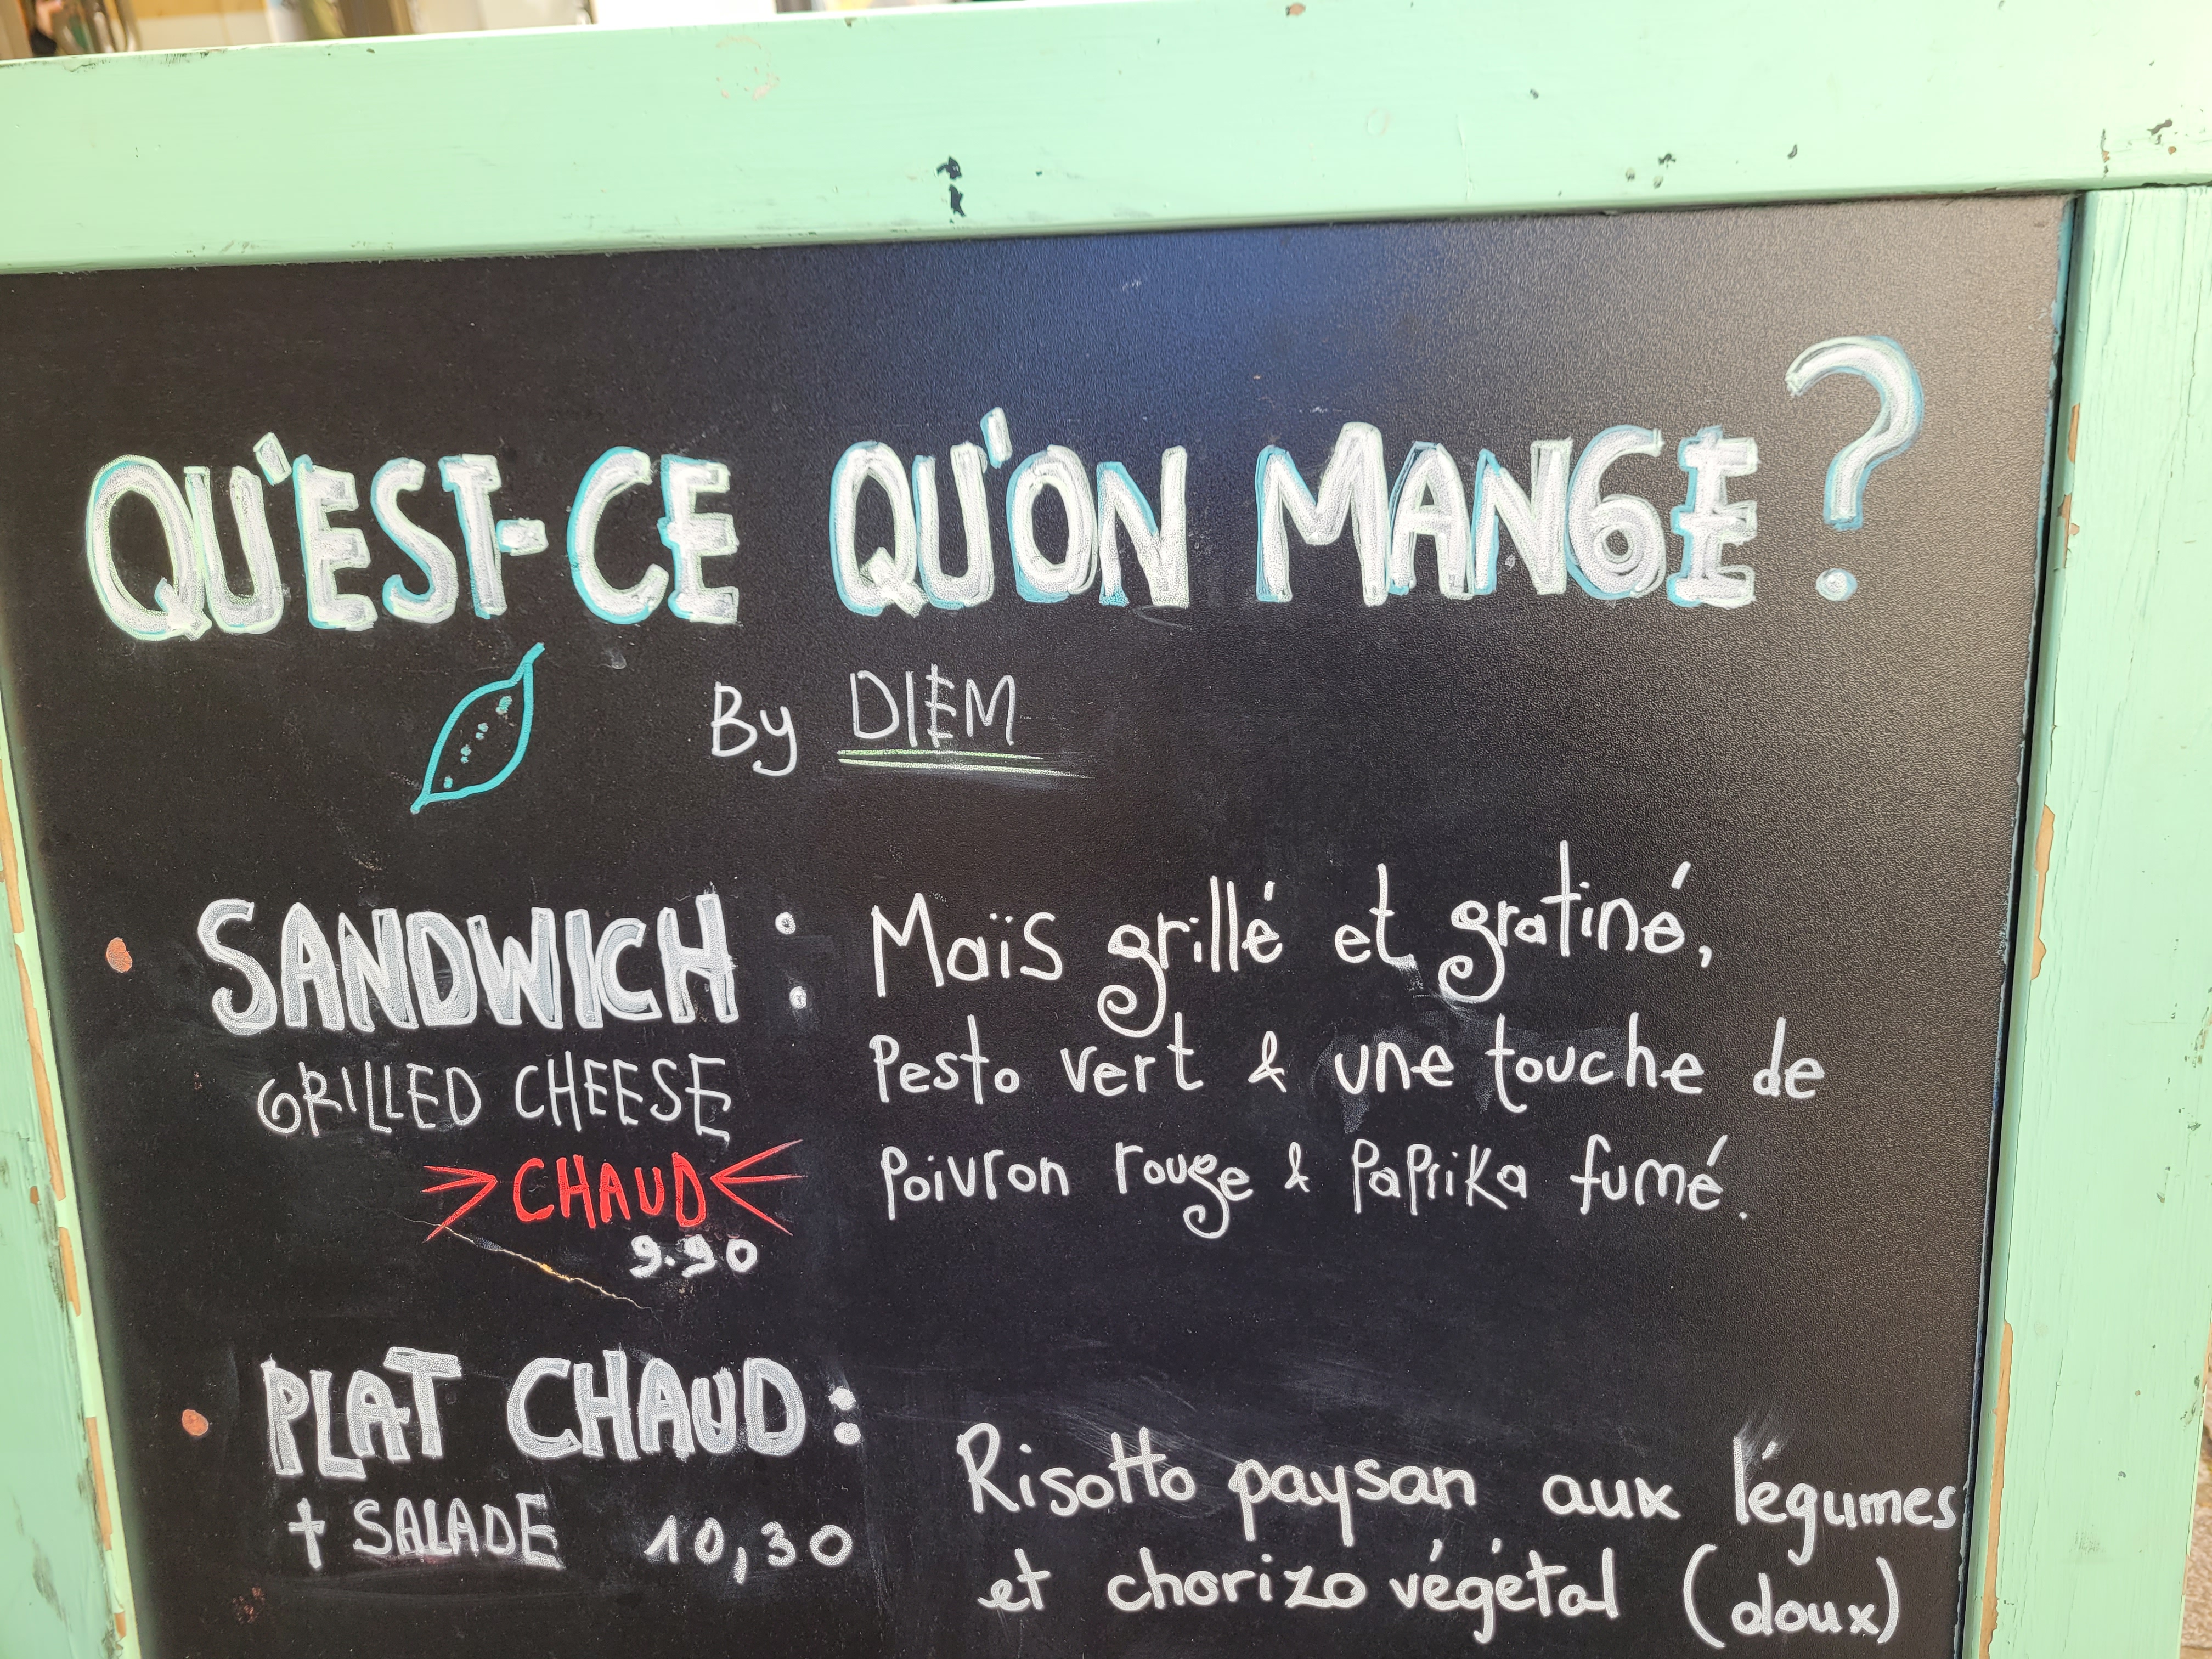 QU'EST-CE QU'ON MANGE ?
By DIEM
SANDWICH : Maïs grillé et gratiné,
GRILLED CHEESE Pesto vert & une touche de
>CHAUD< Poivron rouge & Paprika fumé.
9.90
PLAT CHAUD : Risotto paysan aux légumes
+ SALADE 10,30 et chorizo végétal (doux)